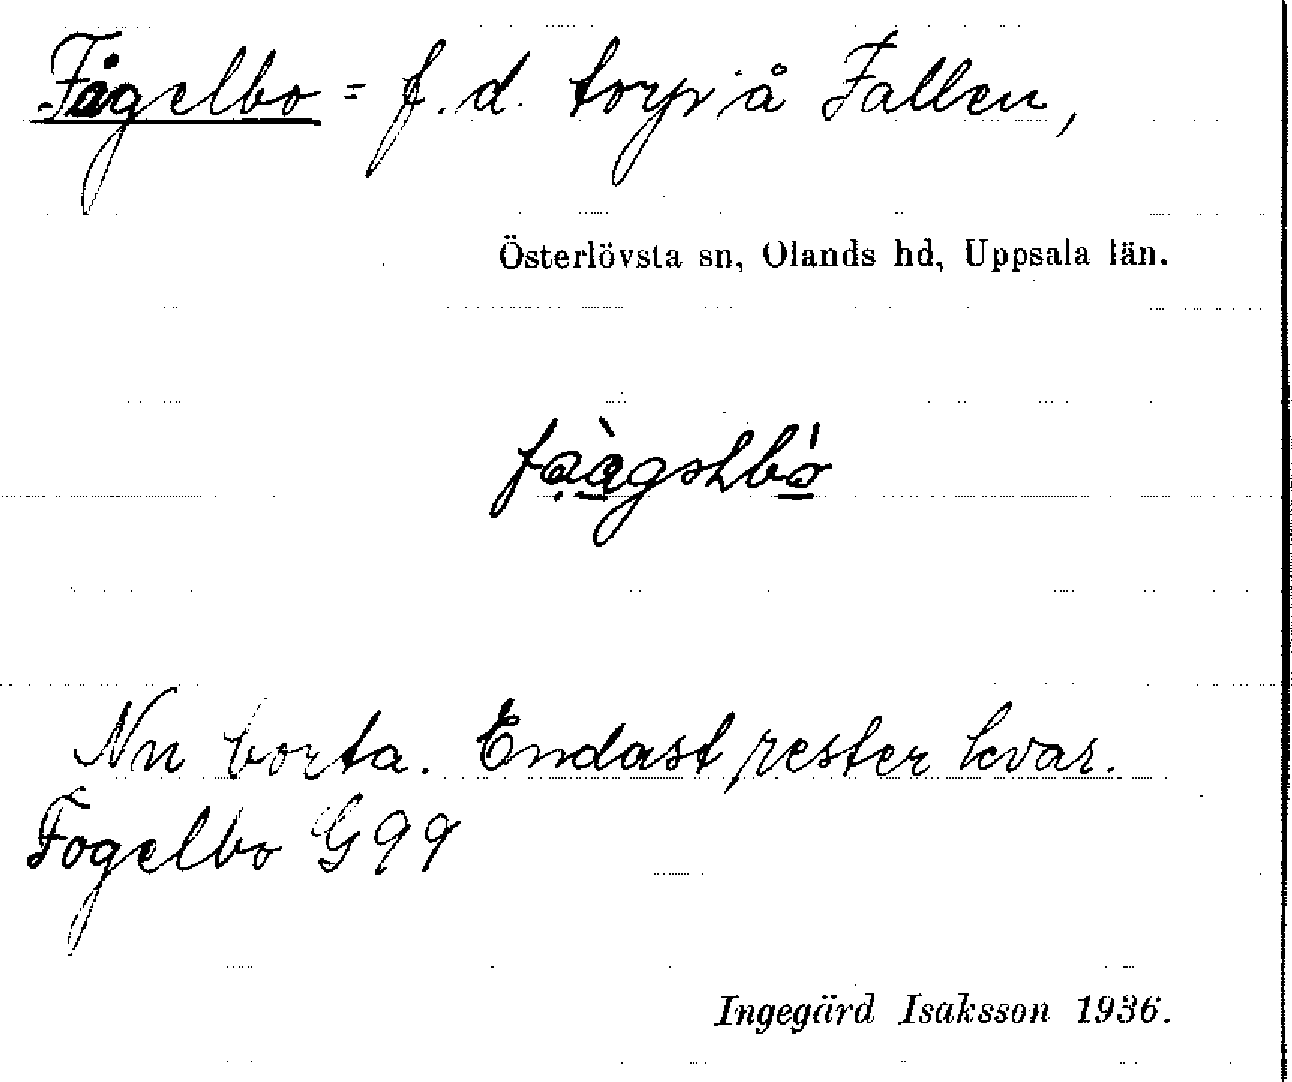 Fågelbo = f. d. torp å Fallen,
Österlövsta sn, Olands hd, Uppsala län.
Nu borta. Endast rester kvar.
Fogelbo G 99
Ingegärd Isaksson 1936.